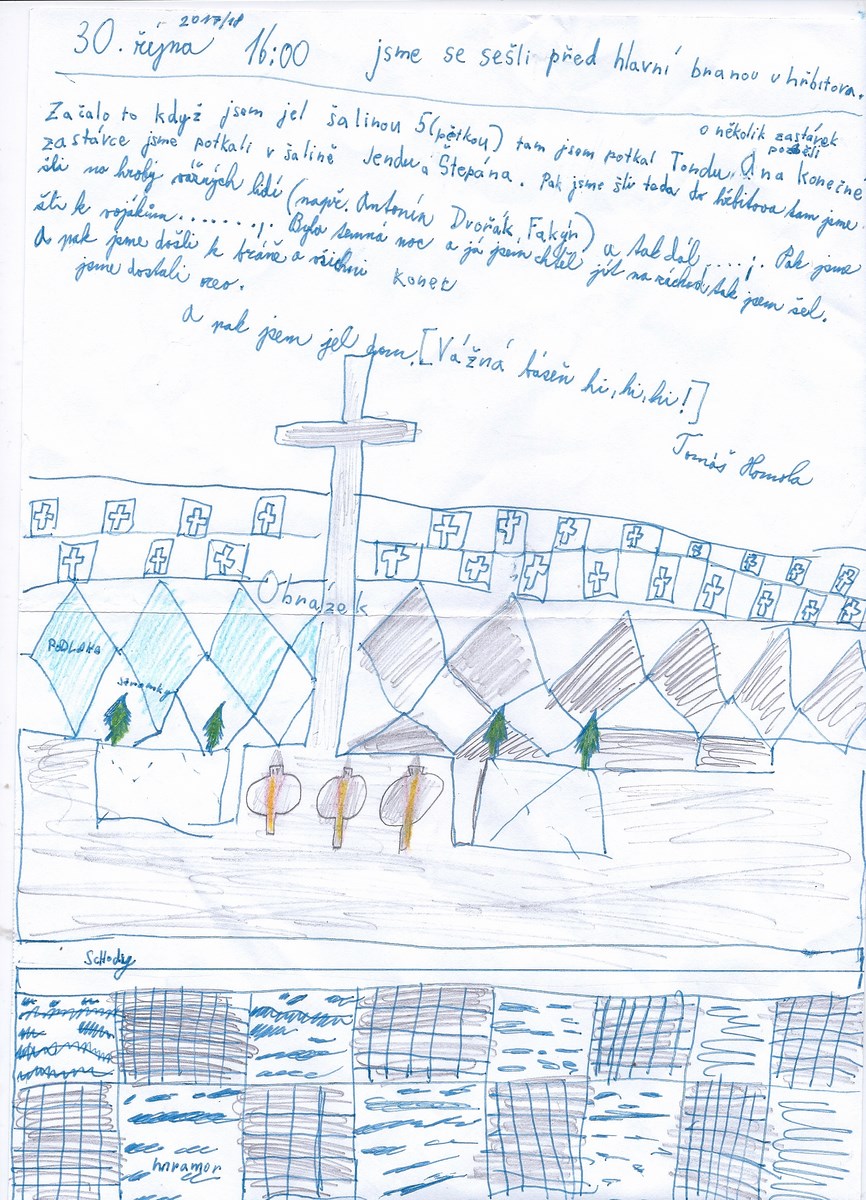 2017/18
30. října 16:00 jsme se sešli před hlavní branou u hřbitova.
Začalo to když jsem jel šalinou 5 (pětkou) tam jsem potkal Tondu, o několik zastávek později
A na konečné
zastávce jsme potkali v šalině Jendu a Štěpána. Pak jsme šli teda do hřbitova tam jsme
šli na hroby vážných lidí (např. Antonín Dvořák, ) a tak dál
šli k vojákům........ Byla temná noc a já jsem chtěl jít na záchod, tak jsem šel. Pak jsme
A pak jsme došli k bráně a všichni
jsme dostali
Konec
A pak jsem jel dom. [Vážná báseň hi, hi, hi!]
Tomáš Homola
Obrázek
PODLAHA
stromky
Schody
mramor